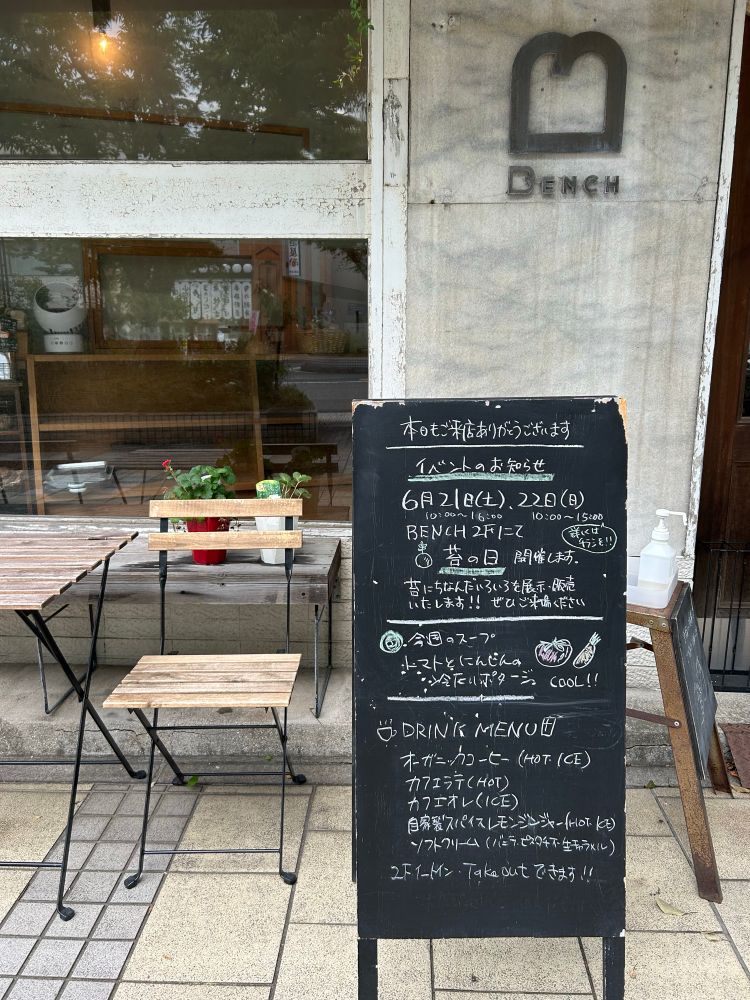 BENCH
本日もご来店ありがとうございます
イベントのお知らせ
6月21日(土)、22日(日)
10:00〜16:00 10:00〜15:00
BENCH 2Fにて
詳しくはチラシを!!
苔の日 開催します。
苔にちなんだいろいろを展示・販売
いたします!! ぜひご来場ください
今週のスープ
トマトとにんじんの
冷たいポタージュ
COOL!!
DRINK MENU
オーガニックコーヒー (HOT・ICE)
カフェラテ(HOT)
カフェオレ(ICE)
自家製スパイスレモンジンジャー(HOT・ICE)
ソフトクリーム (バニラ・ピスタチオ・生キャラメル)
2Fイートイン・Take outできます!!